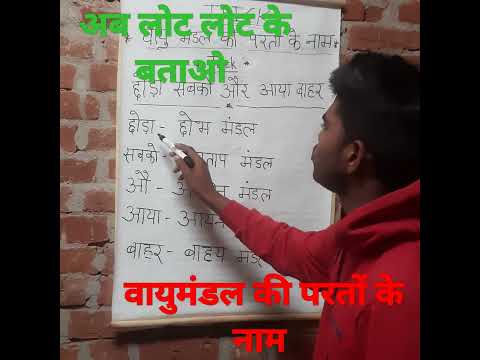 अब लोट लोट के
बताओ
* वायु मंडल की परतों के नाम *
छोड़ा सबको और आया बाहर
छोड़ा - छोभ मंडल
सबको - ताप मंडल
औ - मंडल
आया -
बाहर - बाहय
वायुमंडल की परतों के
नाम